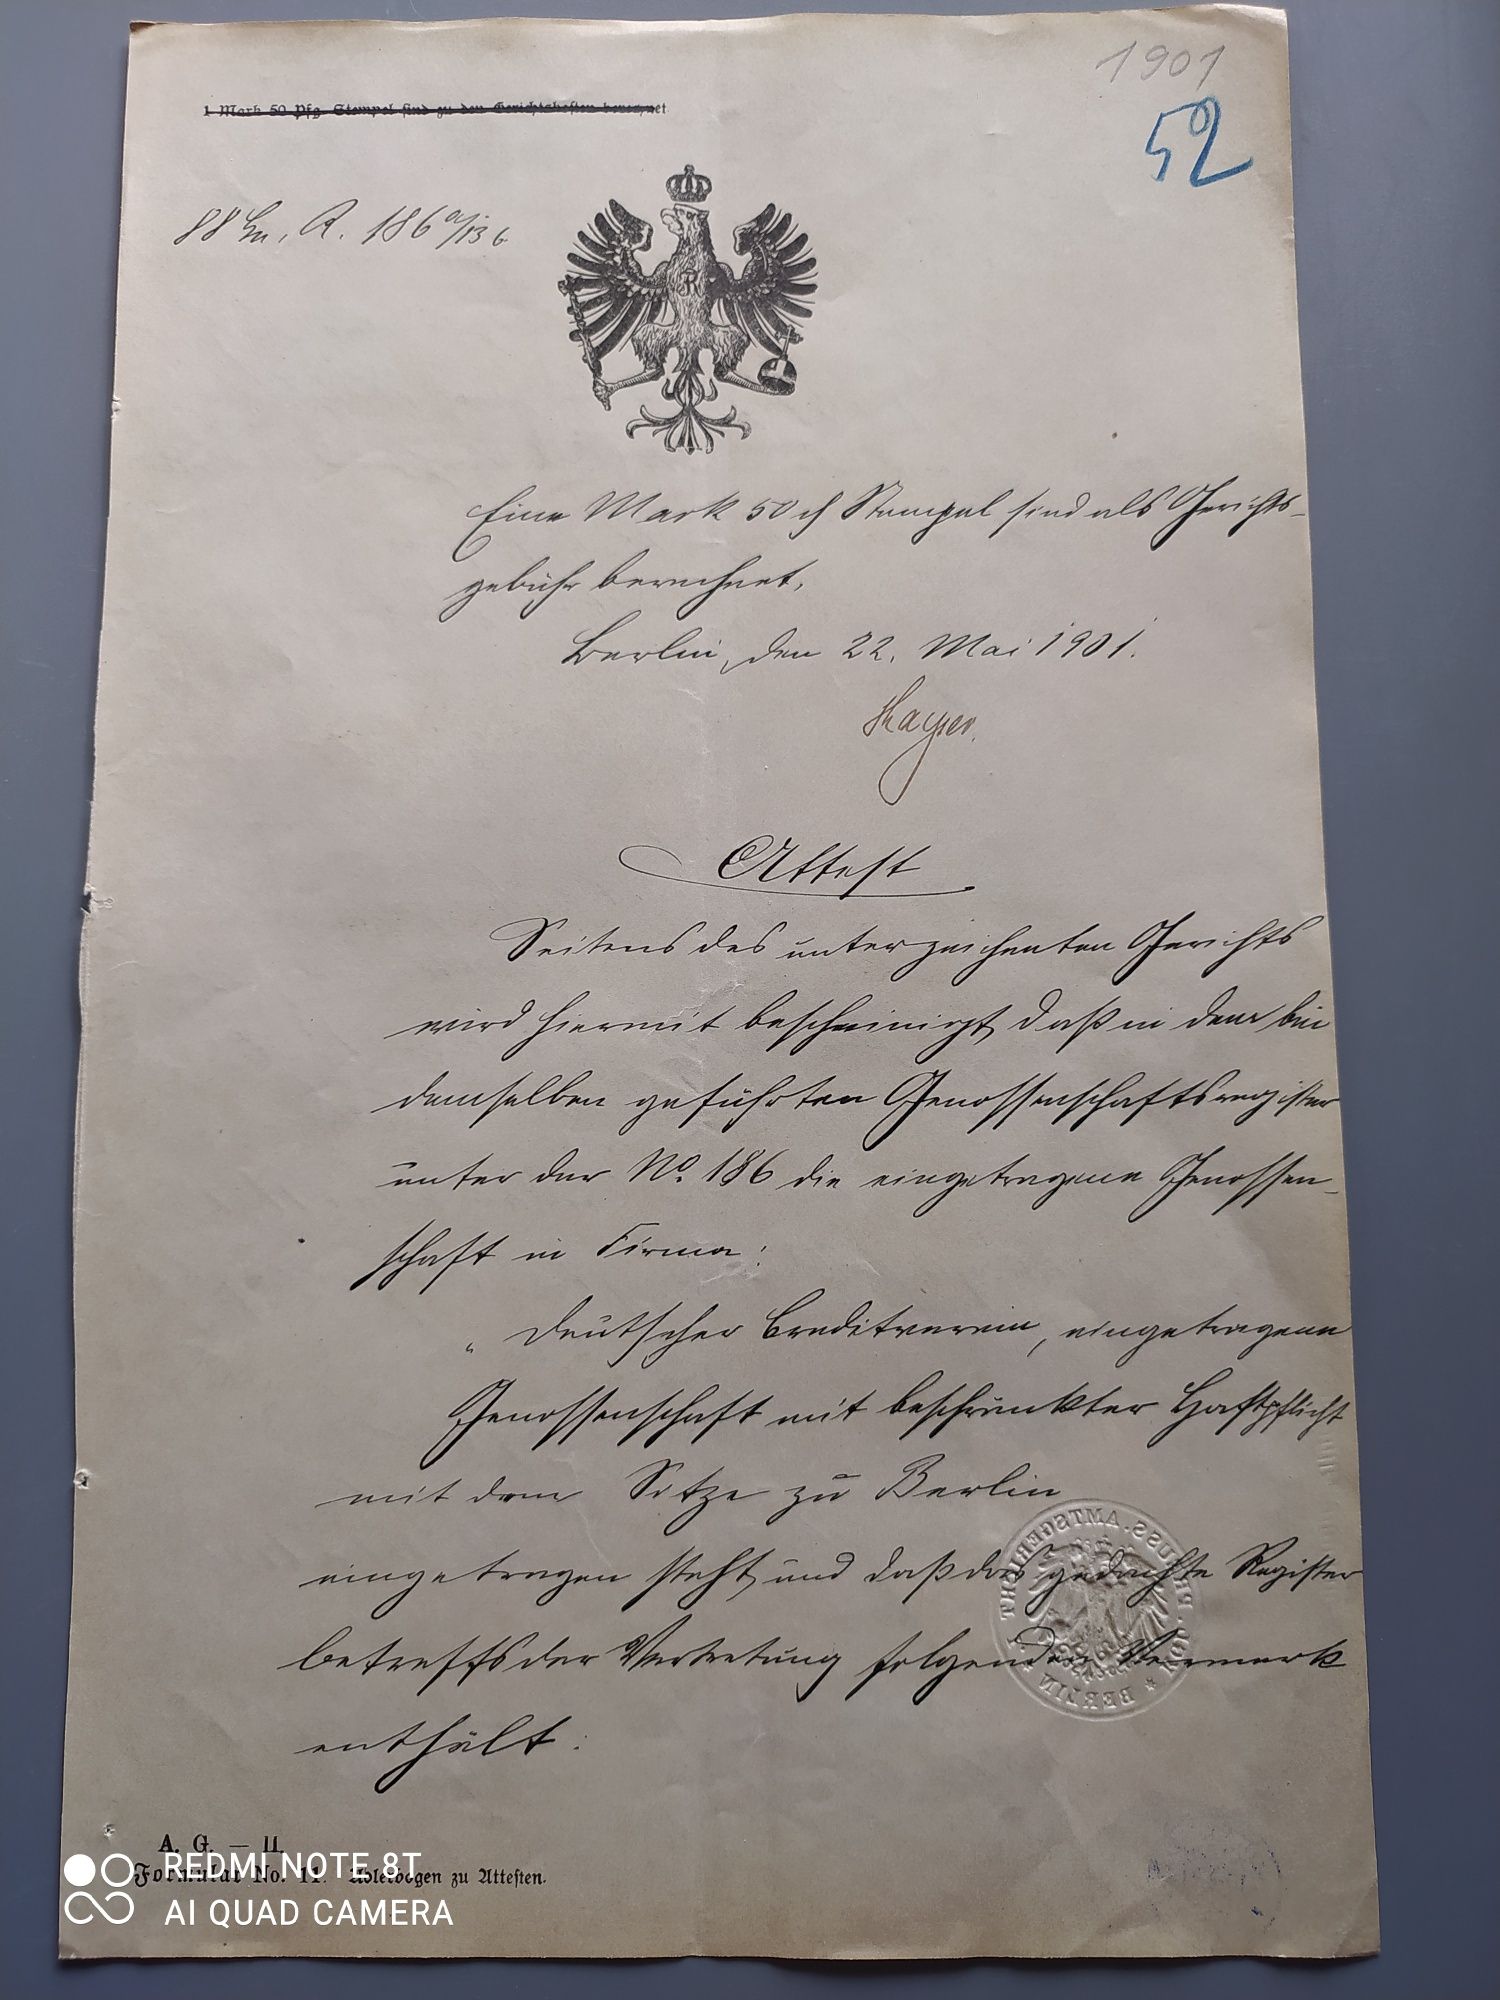 1901
52
1 Mark 50 Pfg. Stempel sind zu den Gerichtskosten berechnet
88 Gn. R. 186 a/13 6
R
Eine Mark 50 ₰ Stempel sind als Gerichts-
gebühr berechnet.
Berlin, den 22. Mai 1901.
Kayser.
Attest
Seitens des unterzeichneten Gerichts
wird hiermit bescheinigt, daß in dem bei
demselben geführten Genossenschaftsregister
unter der No. 186 die eingetragene Genossen-
schaft in Firma:
„Deutscher Creditverein, eingetragene
Genossenschaft mit beschränkter Haftpflicht
mit dem Sitze zu Berlin
eingetragen steht, und daß das gedachte Register
betreffs der Vertretung folgenden Vermerk
enthält:
PREUSS. AMTSGERICHT I. * BERLIN
A. G. — 11
Formular No. 11. Adlerbogen zu Attesten.
REDMI NOTE 8T
AI QUAD CAMERA